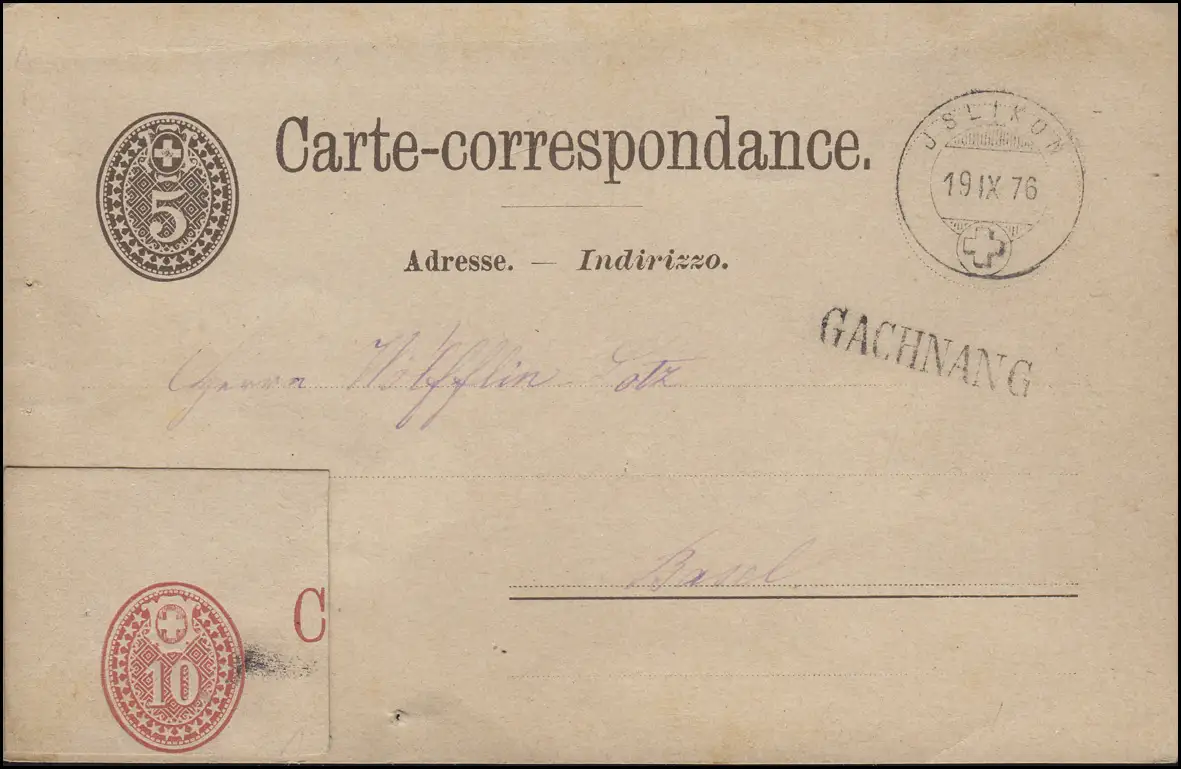 5
Carte-correspondance.
JSLIKON
19 IX 76
Adresse. — Indirizzo.
GACHNANG
Herrn Wölfflin-Lotz
Basel
C
10